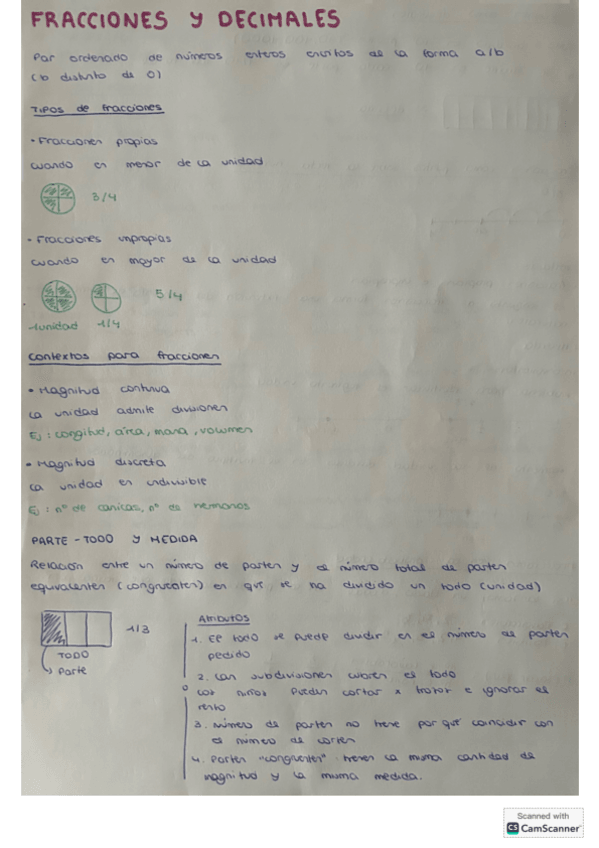 FRACCIONES Y DECIMALES
Par ordenado de números enteros escritos de la forma a/b
(b distinto de 0)
TIPOS de fracciones
• Fracciones propias
cuando es menor de la unidad
3/4
• Fracciones impropias
cuando es mayor de la unidad
5/4
1unidad 1/4
Contextos para fracciones
• Magnitud continua
La unidad admite divisiones
Ej: longitud, área, masa, volumen
• Magnitud discreta
La unidad es indivisible
Ej: nº de canicas, nº de hermanos
PARTE - TODO Y MEDIDA
Relación entre un número de partes y el número total de partes
equivalentes (congruentes) en que se ha dividido un todo (unidad)
1/3
TODO
Parte
Atributos
1. El todo se puede dividir en el número de partes
pedido
2. Las subdivisiones cubren el todo
Los niños pueden cortar x trozos e ignorar el
resto
3. número de partes no tiene por qué coincidir con
el número de cortes
4. Partes "congruentes" tienen la misma cantidad de
magnitud y la misma medida.
Scanned with
CS CamScanner